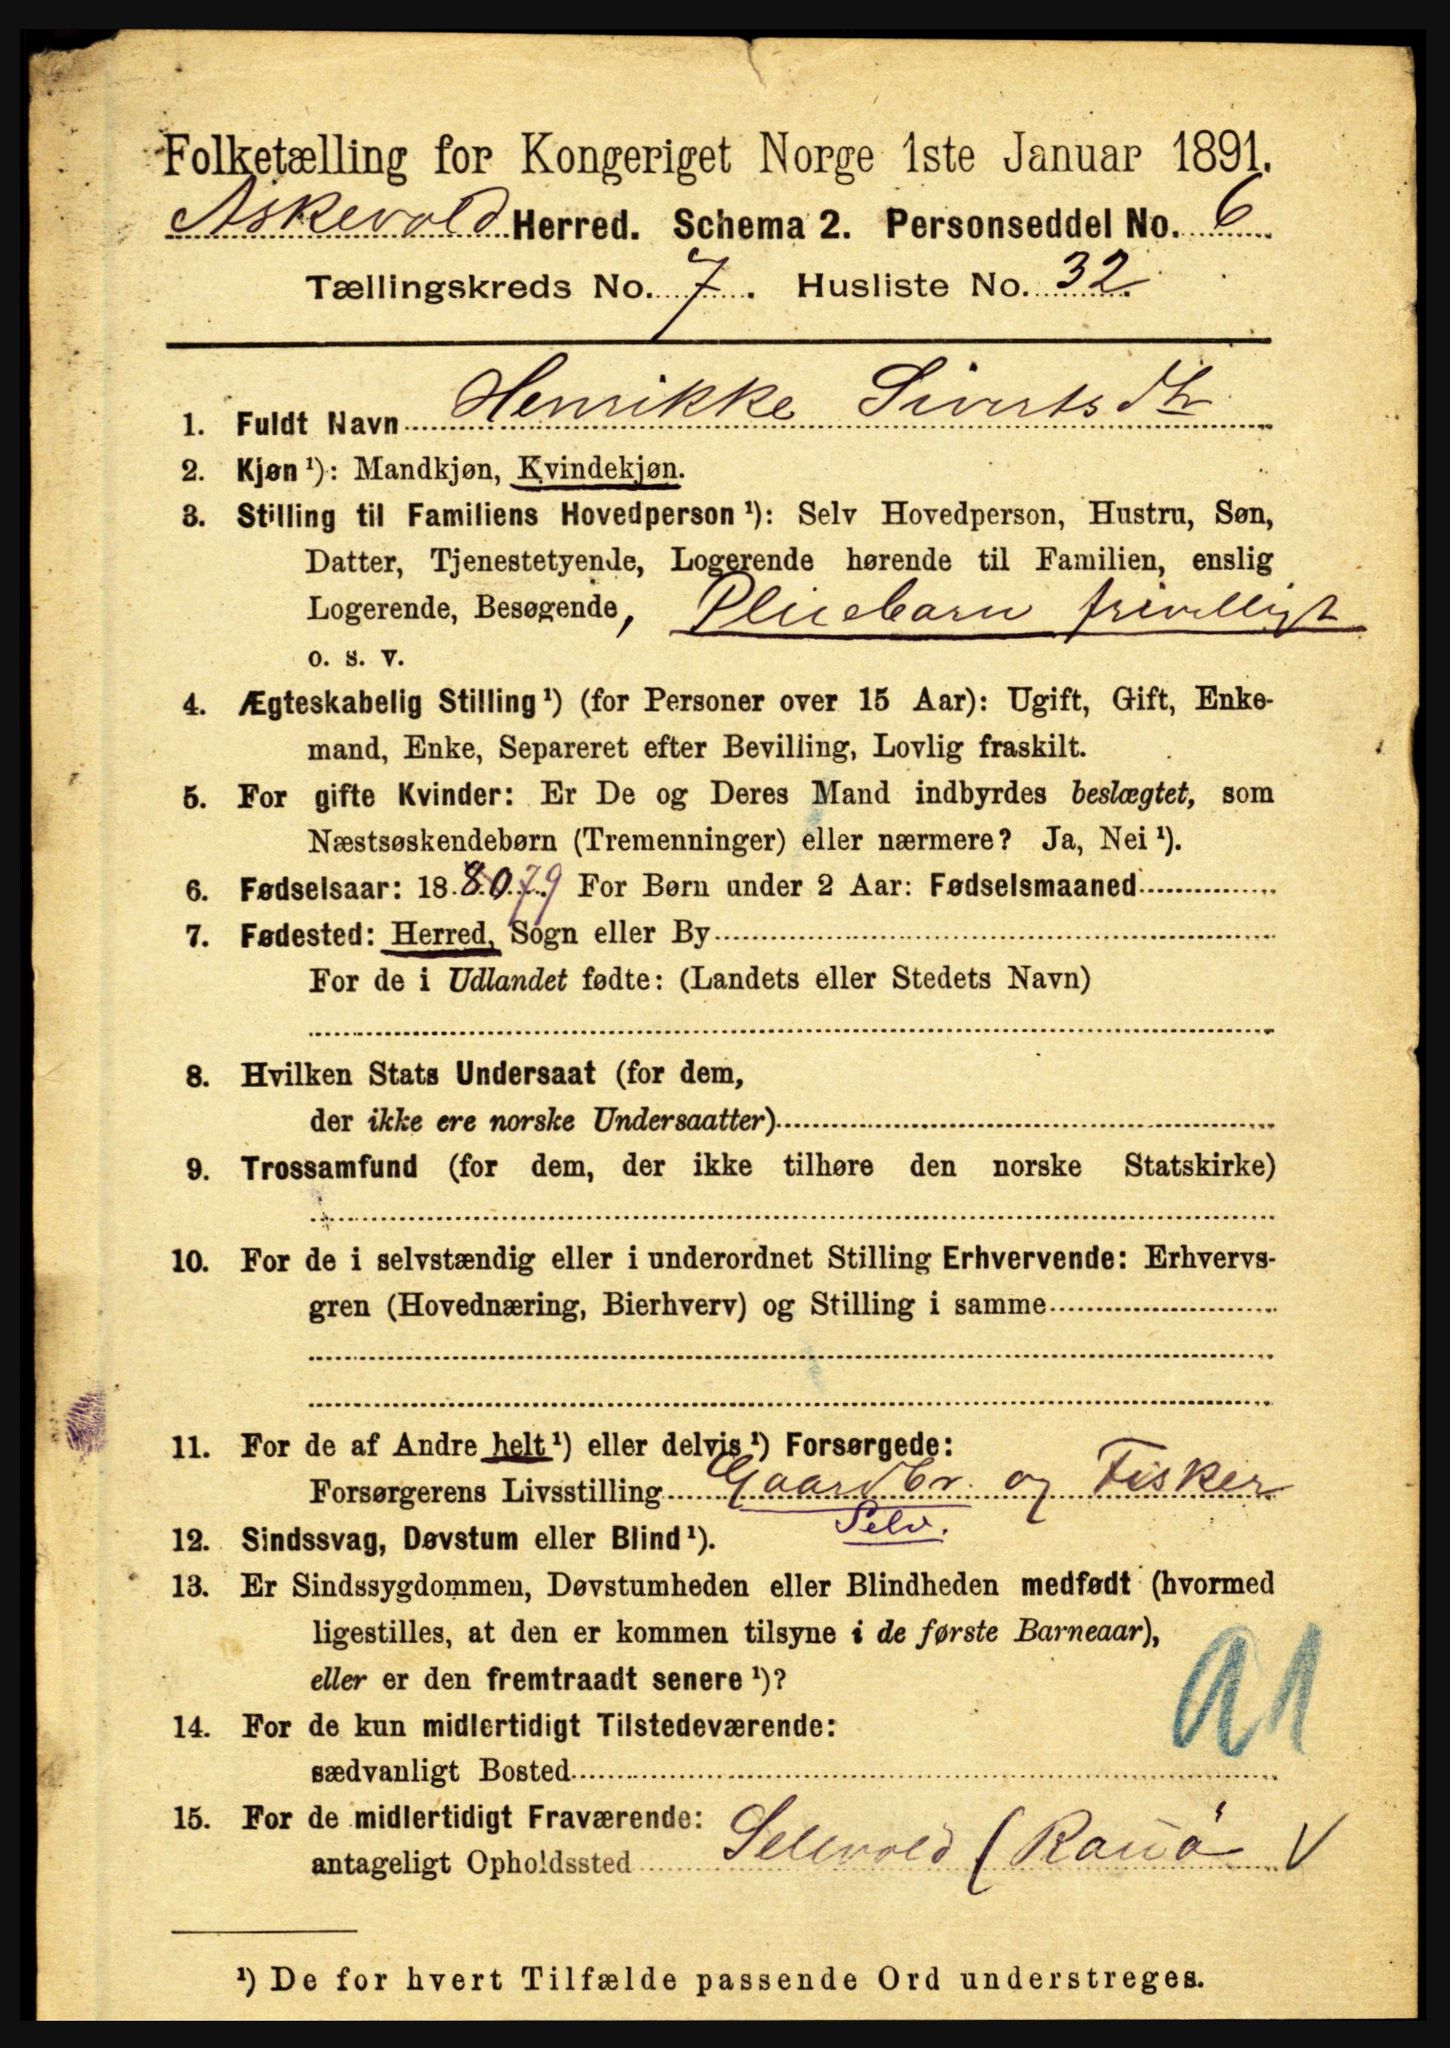 Folketælling for Kongeriget Norge 1ste Januar 1891.
Askevold Herred. Schema 2. Personseddel No. 6
Tællingskreds No. 7. Husliste No. 32.
1. Fuldt Navn Henrikke Sivertsdtr
2. Kjøn ¹): Mandkjøn, Kvindekjøn.
3. Stilling til Familiens Hovedperson ¹): Selv Hovedperson, Hustru, Søn,
Datter, Tjenestetyende, Logerende hørende til Familien, enslig
Logerende, Besøgende, Pliebarn frivilligt
o. s. v.
4. Ægteskabelig Stilling ¹) (for Personer over 15 Aar): Ugift, Gift, Enke-
mand, Enke, Separeret efter Bevilling, Lovlig fraskilt.
5. For gifte Kvinder: Er De og Deres Mand indbyrdes beslægtet, som
Næstsøskendebørn (Tremenninger) eller nærmere? Ja, Nei ¹).
6. Fødselsaar: 18 80 79 For Børn under 2 Aar: Fødselsmaaned
7. Fødested: Herred, Sogn eller By
For de i Udlandet fødte: (Landets eller Stedets Navn)
8. Hvilken Stats Undersaat (for dem,
der ikke ere norske Undersaatter)
9. Trossamfund (for dem, der ikke tilhøre den norske Statskirke)
10. For de i selvstændig eller i underordnet Stilling Erhvervende: Erhvervs-
gren (Hovednæring, Bierhverv) og Stilling i samme
11. For de af Andre helt ¹) eller delvis ¹) Forsørgede:
Forsørgerens Livsstilling Gaardbr. og Fisker
Selv.
12. Sindssvag, Døvstum eller Blind ¹).
13. Er Sindssygdommen, Døvstumheden eller Blindheden medfødt (hvormed
ligestilles, at den er kommen tilsyne i de første Barneaar),
eller er den fremtraadt senere ¹)?
14. For de kun midlertidigt Tilstedeværende:
sædvanligt Bosted
15. For de midlertidigt Fraværende:
antageligt Opholdssted Selevold (Rauø V
¹) De for hvert Tilfælde passende Ord understreges.